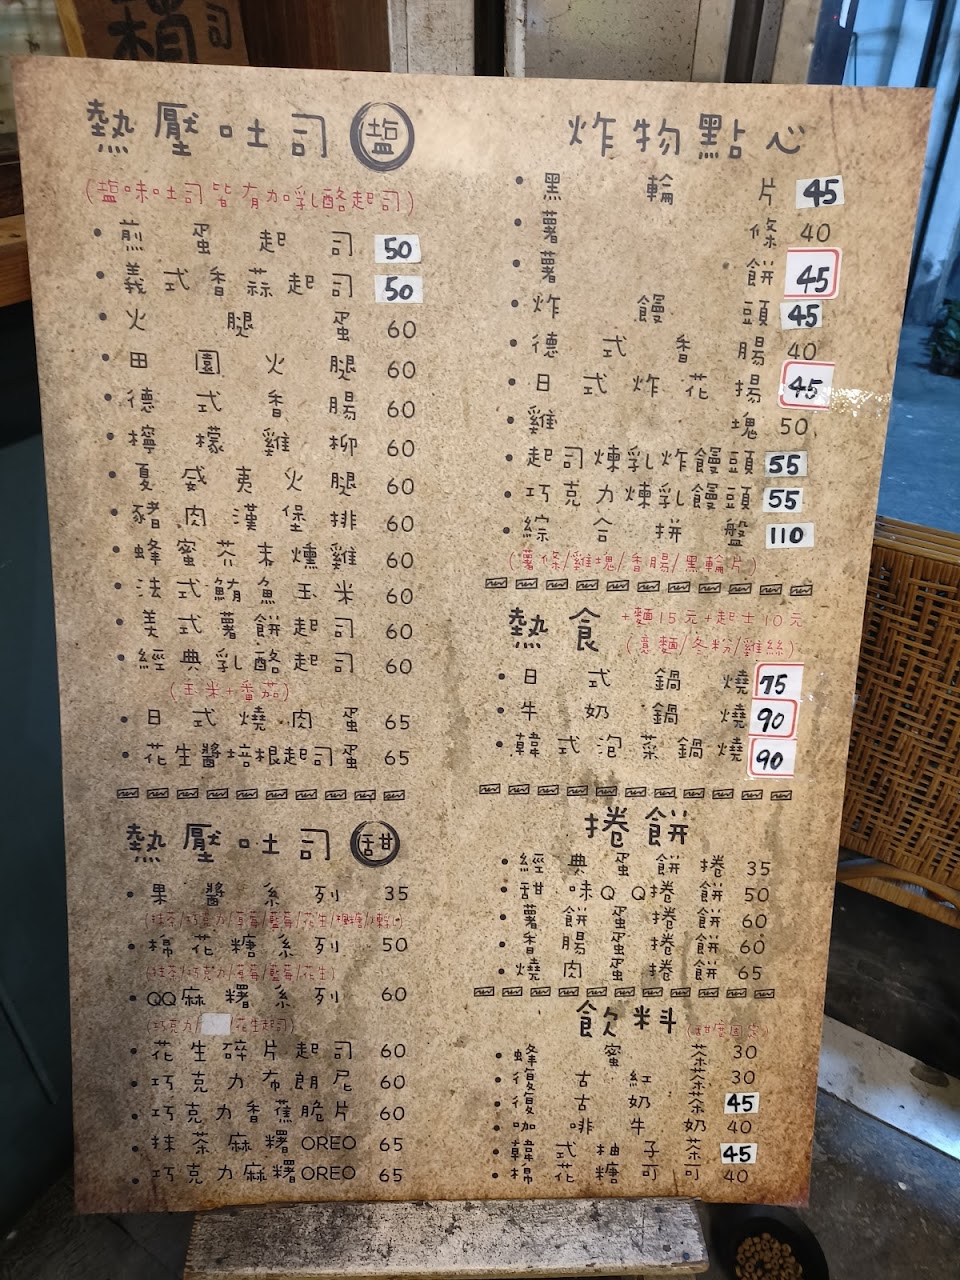 熱壓吐司 塩
(塩味吐司皆有加乳酪起司)
• 煎蛋起司 50
• 義式香蒜起司 50
• 火腿蛋 60
• 田園火腿 60
• 德式香腸 60
• 檸檬雞柳 60
• 夏威夷火腿 60
• 豬肉漢堡排 60
• 蜂蜜芥末燻雞 60
• 法式鮪魚玉米 60
• 美式薯餅起司 60
• 經典乳酪起司 60
(玉米+番茄)
• 日式燒肉蛋 65
• 花生醬培根起司蛋 65
熱壓吐司 甜
• 果醬系列 35
(抹茶/巧克力/草莓/藍莓/花生/
• 棉花糖系列 50
(抹茶/巧克力/草莓/藍莓/花生)
• QQ麻糬系列 60
(巧克力/ /花生起司)
• 花生碎片起司 60
• 巧克力布朗尼 60
• 巧克力香蕉脆片 60
• 抹茶麻糬OREO 65
• 巧克力麻糬OREO 65
炸物點心
• 黑輪片 45
• 薯條 40
• 薯餅 45
• 炸饅頭 45
• 德式香腸 40
• 日式炸花揚 45
• 雞塊 50
• 起司煉乳炸饅頭 55
• 巧克力煉乳饅頭 55
• 綜合拼盤 110
(薯條/雞塊/香腸/黑輪片)
熱食 +麵15元+起士10元
(意麵/冬粉/雞絲)
• 日式鍋燒 75
• 牛奶鍋燒 90
• 韓式泡菜鍋燒 90
捲餅
• 經典蛋餅捲 35
• 甜味QQ捲餅 50
• 薯餅蛋捲餅 60
• 香腸蛋捲餅 60
• 燒肉蛋捲餅 65
飲料 (甜度固定)
• 蜂蜜茶 30
• 復古紅茶 30
• 復古奶茶 45
• 咖啡牛奶 40
• 韓式柚子茶 45
• 棉花糖可可 40